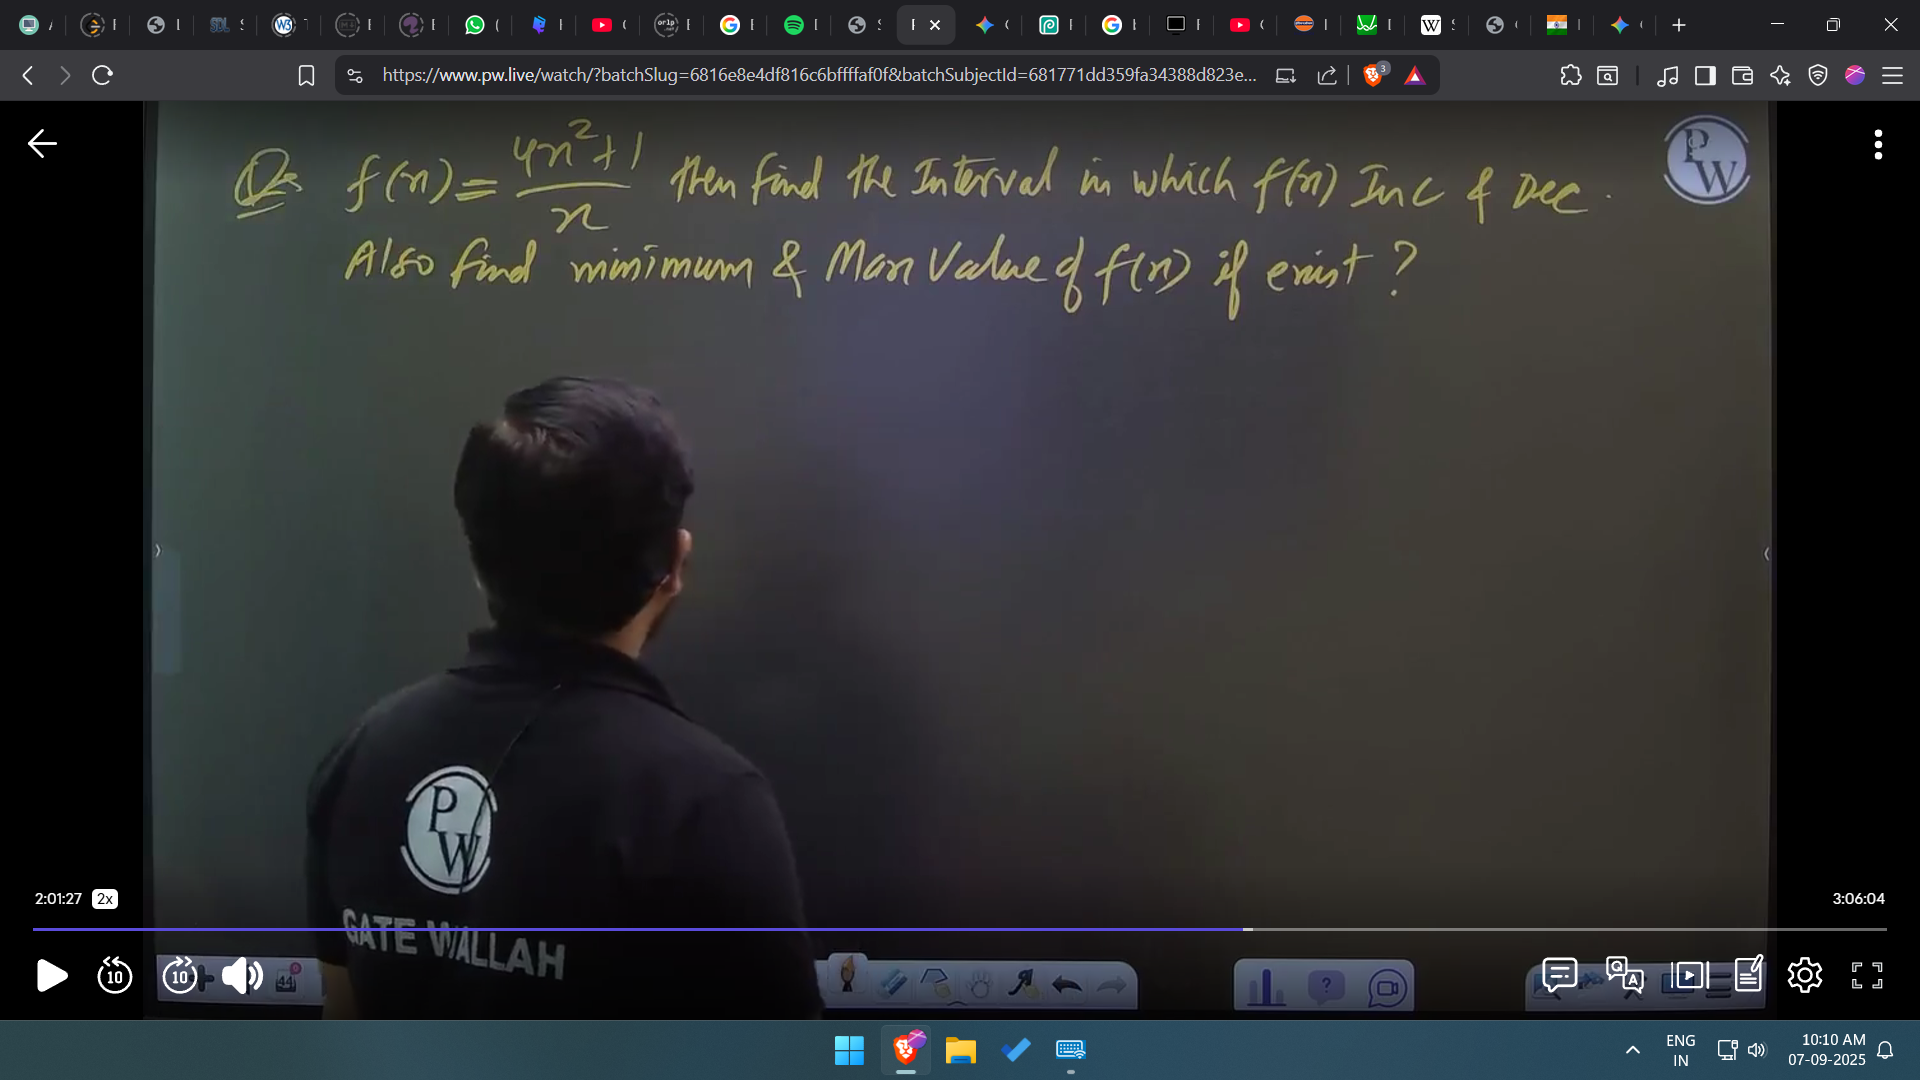 https://www.pw.live/watch/?batchSlug=6816e8e4df816c6bffffaf0f&batchSubjectId=681771dd359fa34388d823e...
3
Q. f(x) = (4x²+1)/x then find the Interval in which f(x) Inc & Dec.
Also find minimum & Max Value of f(x) if exist ?
PW
PW
GATE WALLAH
2:01:27 2x
3:06:04
10 10
44
ENG
IN
10:10 AM
07-09-2025